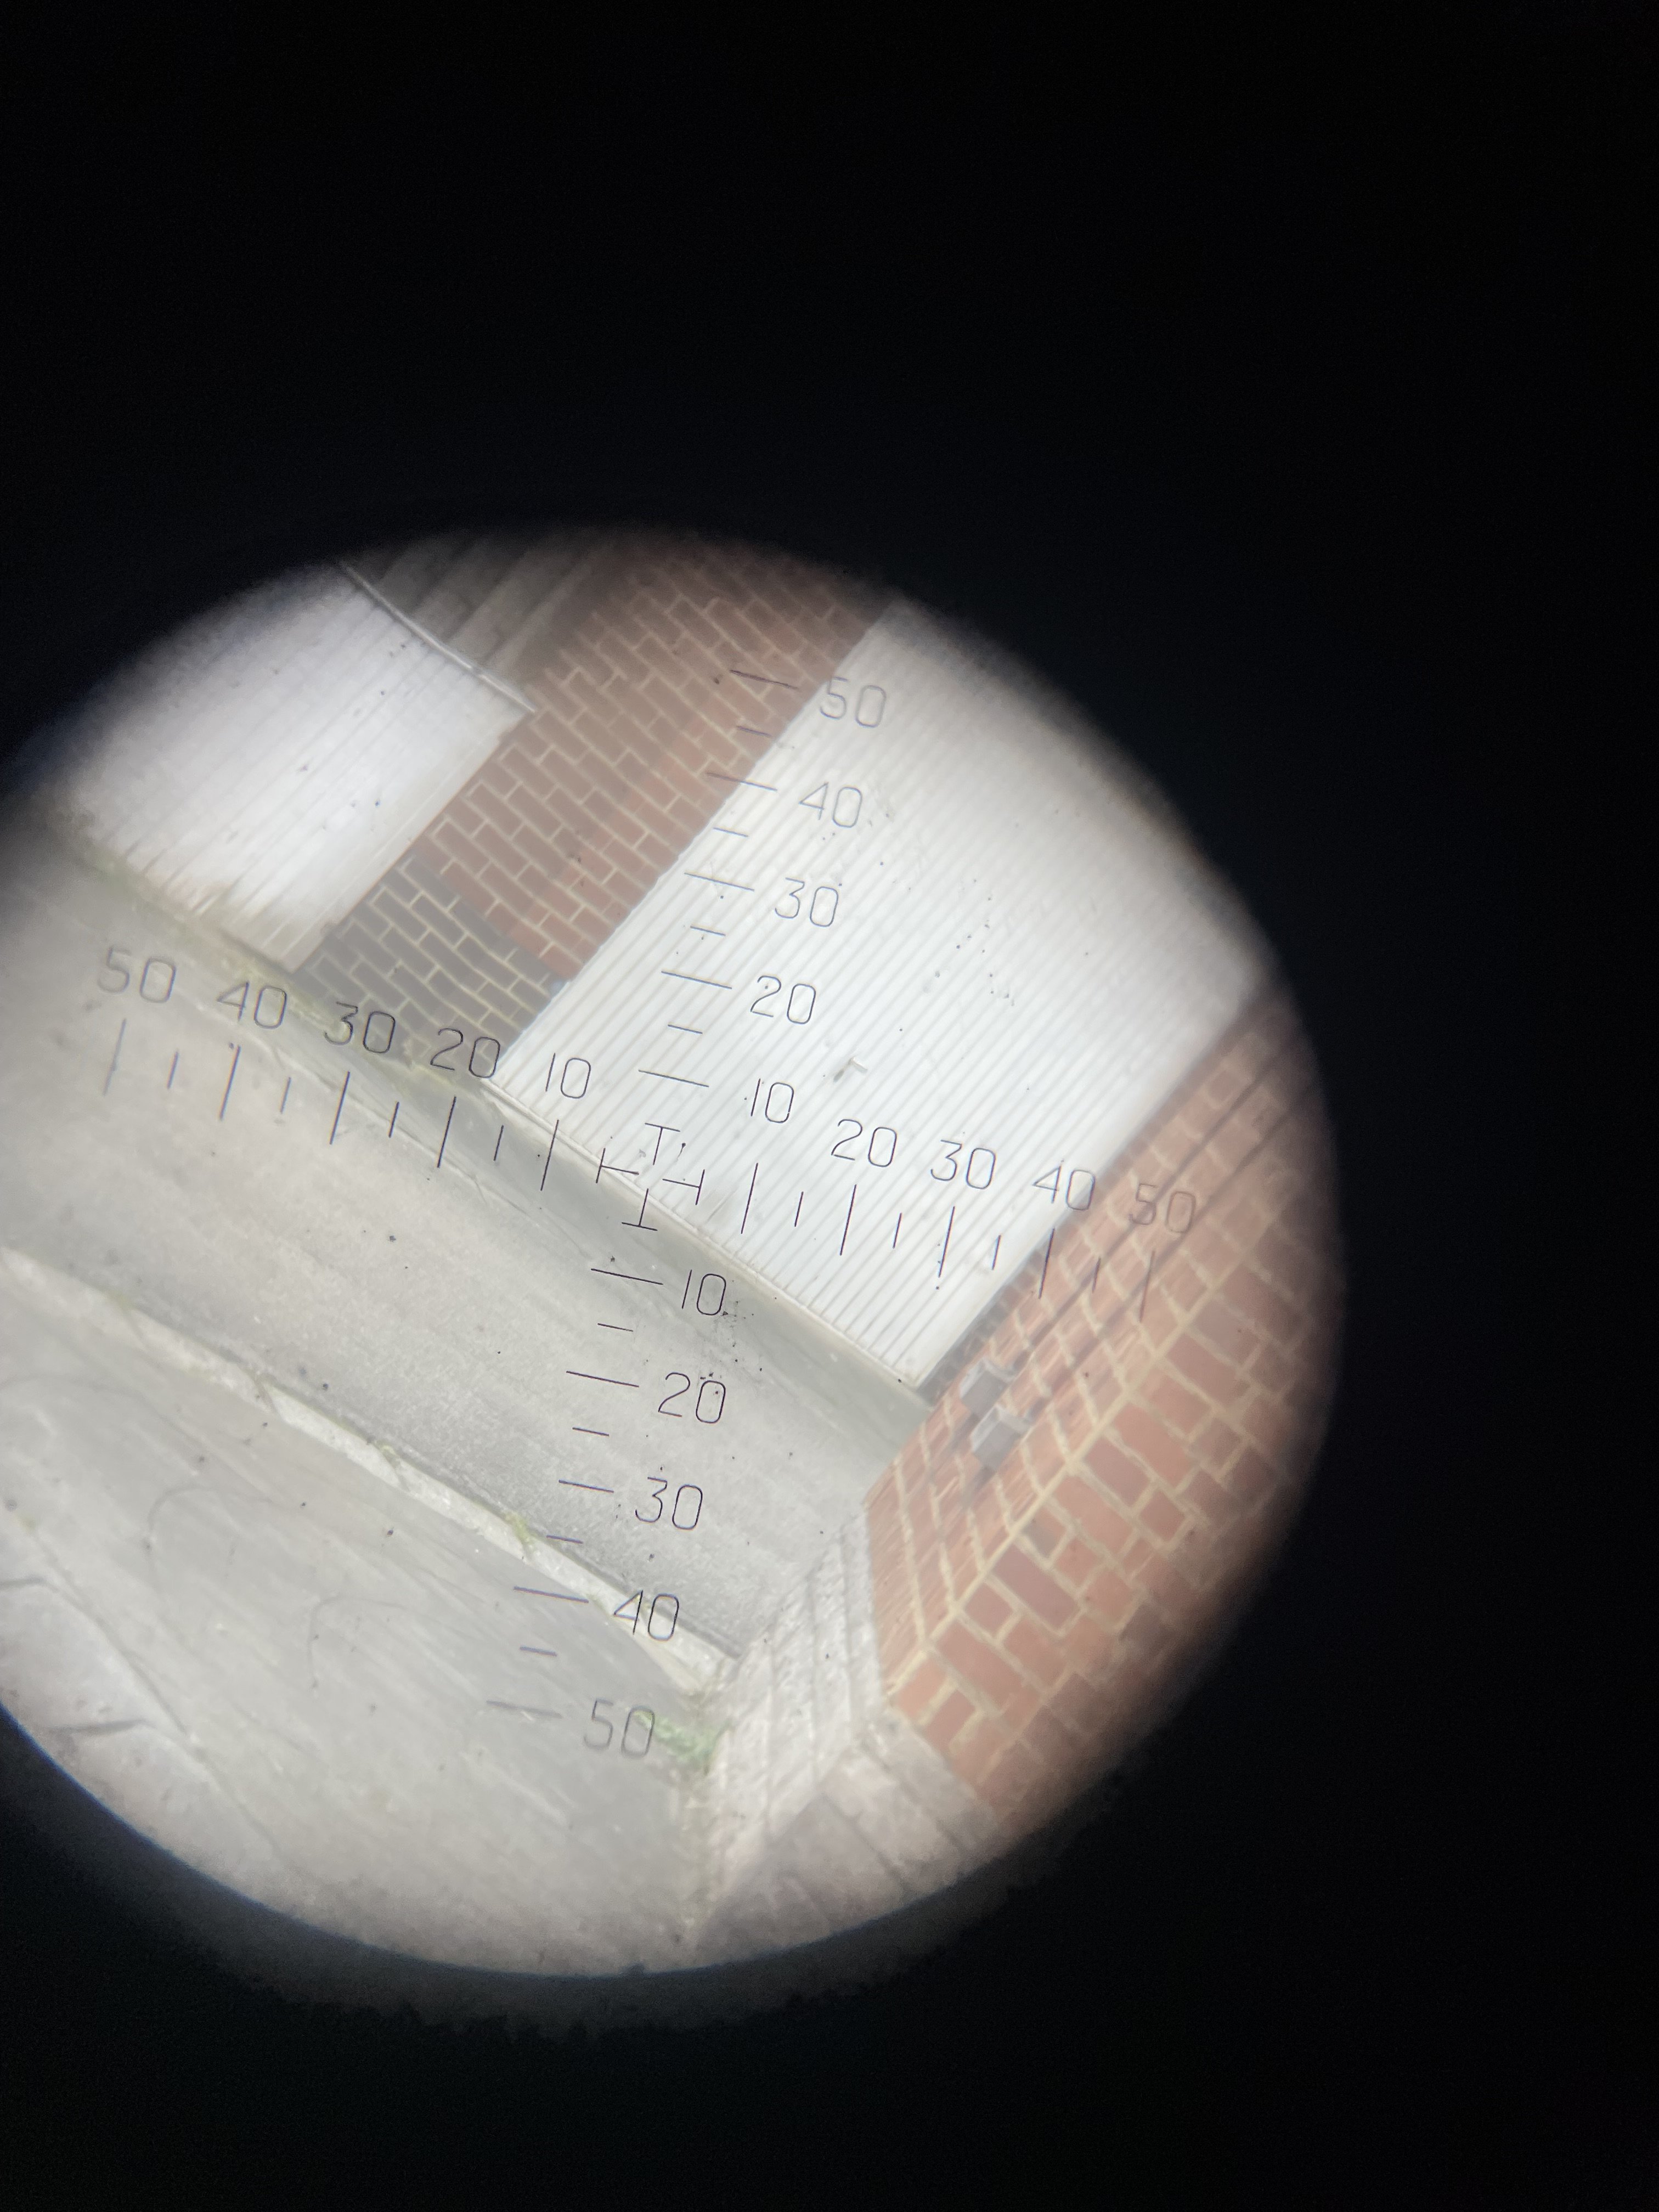 50
40
30
20
10
50 40 30 20 10 10 20 30 40 50
10
20
30
40
50